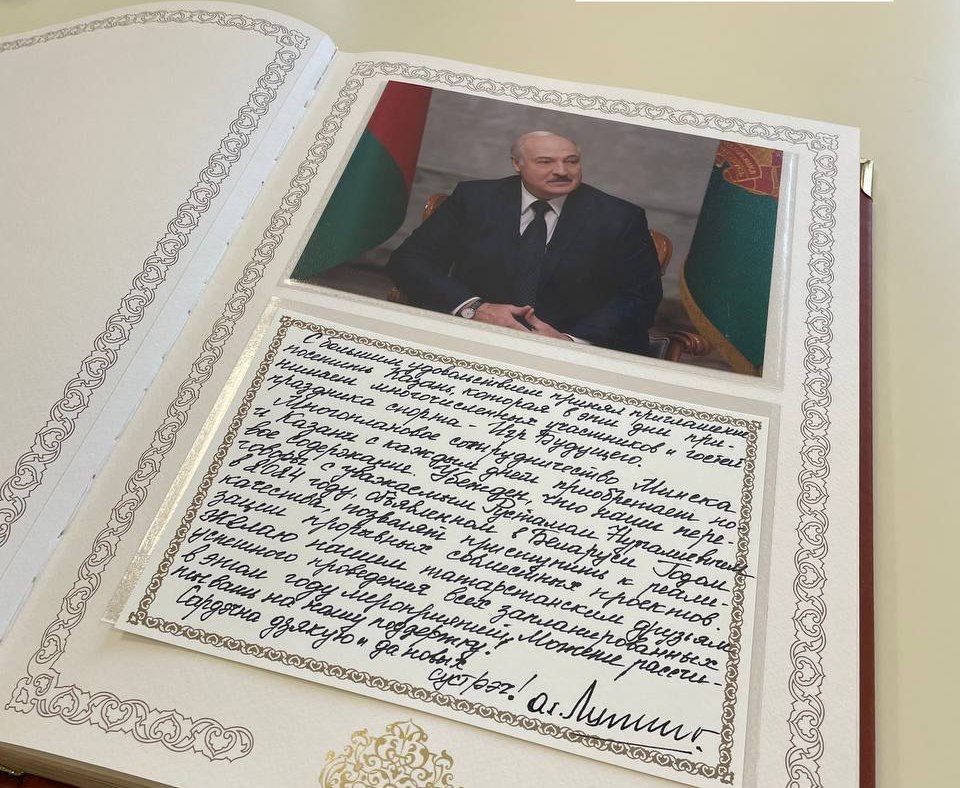 С большим удовольствием принял приглашение
посетить Казань, которая в эти дни при-
нимает многочисленных участников и гостей
праздника спорта - Игр Будущего.
Многоплановое сотрудничество Минска
и Казани с каждым днём приобретает но-
вое содержание. Убежден, что наши пере-
говоры с уважаемым Рустамом Нургалиевичем
в 2024 году, объявленном в Беларуси Годом
качества, позволят приступить к реали-
зации прорывных совместных проектов.
Желаю нашим татарстанским друзьям
успешного проведения всех запланированных
в этом году мероприятий. Можете рассчи-
тывать на нашу поддержку.
Сардэчна дзякую и да новых
сустрэч!